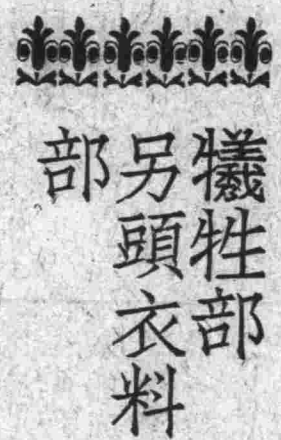 犠牲部
另頭衣料
部